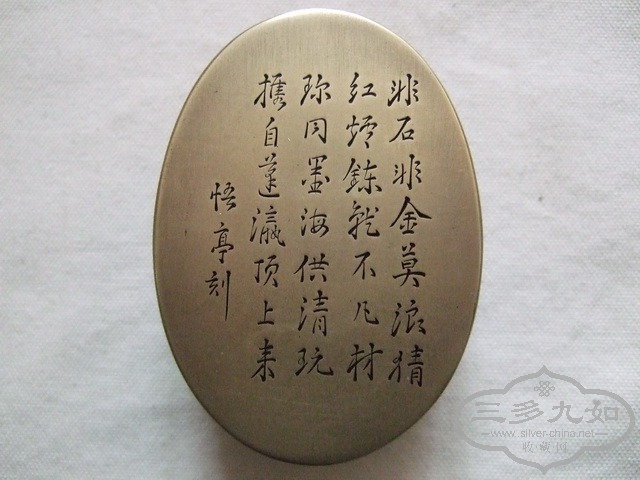 非石非金莫浪猜
红炉鍊就不凡材
珎同墨海供清玩
携自蓬瀛顶上来
悟亭刻
三多九如
www.silver-china.net
收藏网